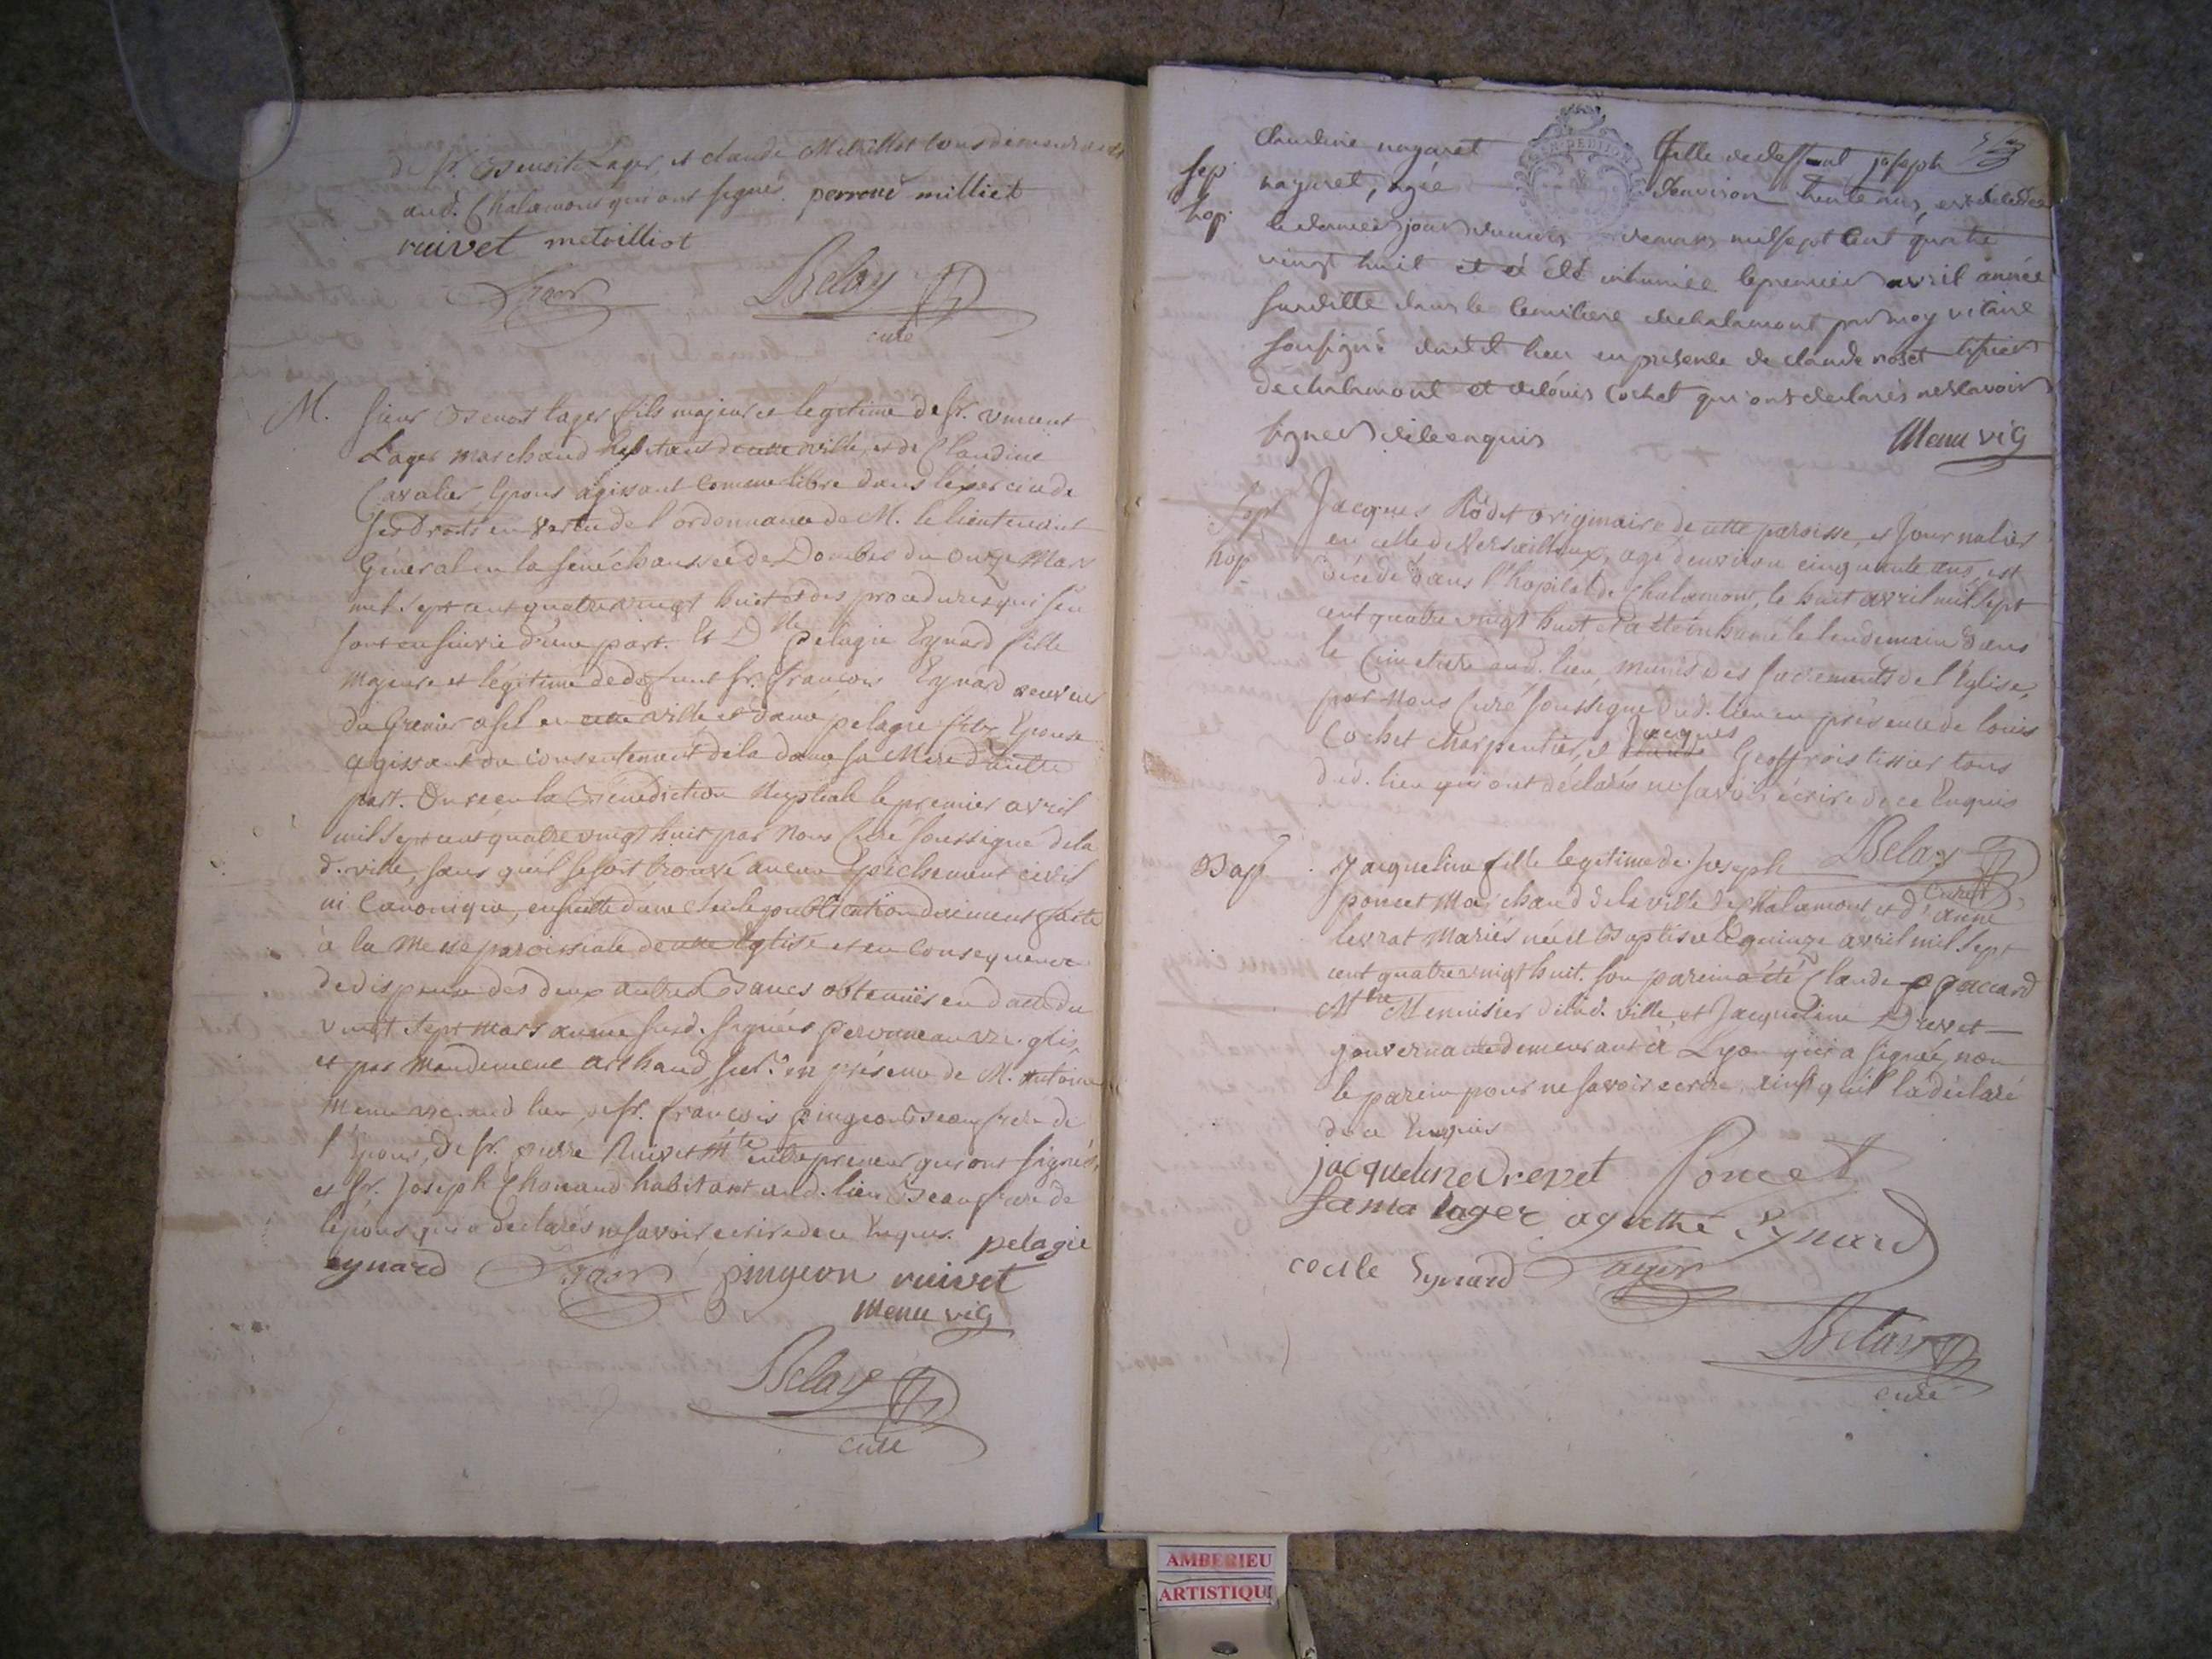 de Sr. Benoit Lager, et claude Metrillot tous demeurants
aud. Chalamont qui ont signés. perroud milliet
ruivet metrilliot
Lager Belay
curé
M. Sieur Benoit Lager fils majeur et légitime de Sr. vincent
Lager marchand habitant de cette ville, et de Claudine
Cavalier Epoux agissant comme libre dans l'éxercice de
ses Droits en vertu de l'ordonnance de M. le lieutenant
Général en la sénéchaussée de Dombes du onze Mars
mil sept cent quatre vingt huit et des procedures qui s'en
sont ensuivie d'une part. Et Dlle pelagie Eynard fille
majeure et légitime de defunt Sr. francois Eynard receveur
du Grenier a sel en cette ville et dame pelagie Epouse
agissant du consentement de la dame sa Mere d'autre
part. Ont recu la Bénédiction Nuptiale le premier avril
mil sept cent quatre vingt huit par Nous Curé soussigné de la
d. ville, sans qu'il se soit trouvé aucun Epéchement civil
ni Canonique, ensuitte d'une seule publication duement faite
à la Messe paroissiale de cette Eglise et en consequence
de dispense des deux autres Bancs obtenües en datte du
vingt sept mars année susd. signées
et par Mandement arthaud secr. en présence de M. antoine
Menu vic. aud lieu, de Sr. françois pingeon Beaufrere de
l'Epoux, de Sr. pierre Ruivet Mtre entrepreneur qui ont signés,
et Sr. Joseph Chonand habitant aud. lieu Beaufrere de
l'epoux qui a declarés ne savoir ecrire de ce Enquis. pelagie
eynard Lager pingeon ruivet
menu vic
Belay
curé
Claudine nagaret fille de deffunt joseph
Sep. nagaret, agée d'environ trente ans, est décédée
hop. le dernier jour du mois de mars mil sept cent quatre
vingt huit et a été inhumée le premier avril année
susditte dans le cemitiere de chalamont par moy vicaire
sousigné dudit lieu en presence de claude roset tissier
de chalamont et de loüis Cochet qui ont declarés ne scavoir
signer de ce enquis Menu vic
Sep Jacques Rodet originaire de cette paroisse, et Journalier
en celle de Versailleux, agé d'environ cinquante ans, est
hop décédé dans l'hopital de Chalamont, le huit avril mil sept
cent quatre vingt huit et a été inhumé le lendemain dans
le Cimetiere aud. lieu, munis des sacrements de l'Eglise,
par nous Curé soussigné dud. lieu en présence de louis
Cochet charpentier, et Jacques claude Geoffrois tissier tous
dud. lieu qui ont déclarés ne savoir écrire de ce Enquis
Belay
curé
Bap Jacqueline fille legitime de Joseph
poncet Marchand de la ville de Chalamont, et d'anne
levrat Mariés née et Baptisée le quinze avril mil sept
cent quatre vingt huit. son parein a été Claude paccard
Mtre Menuisier de lad. ville, et Jacqueline Drevet
gouvernante demeurant à Lyon qui a signée, non
le parein pour ne savoir ecrire, ainsi qu'il l'a déclaré
de ce Enquis
jacqueline drevet Poncet
lager agathe Eynard
cecile Eynard Lager
Belay
curé
AMBERIEU
ARTISTIQU